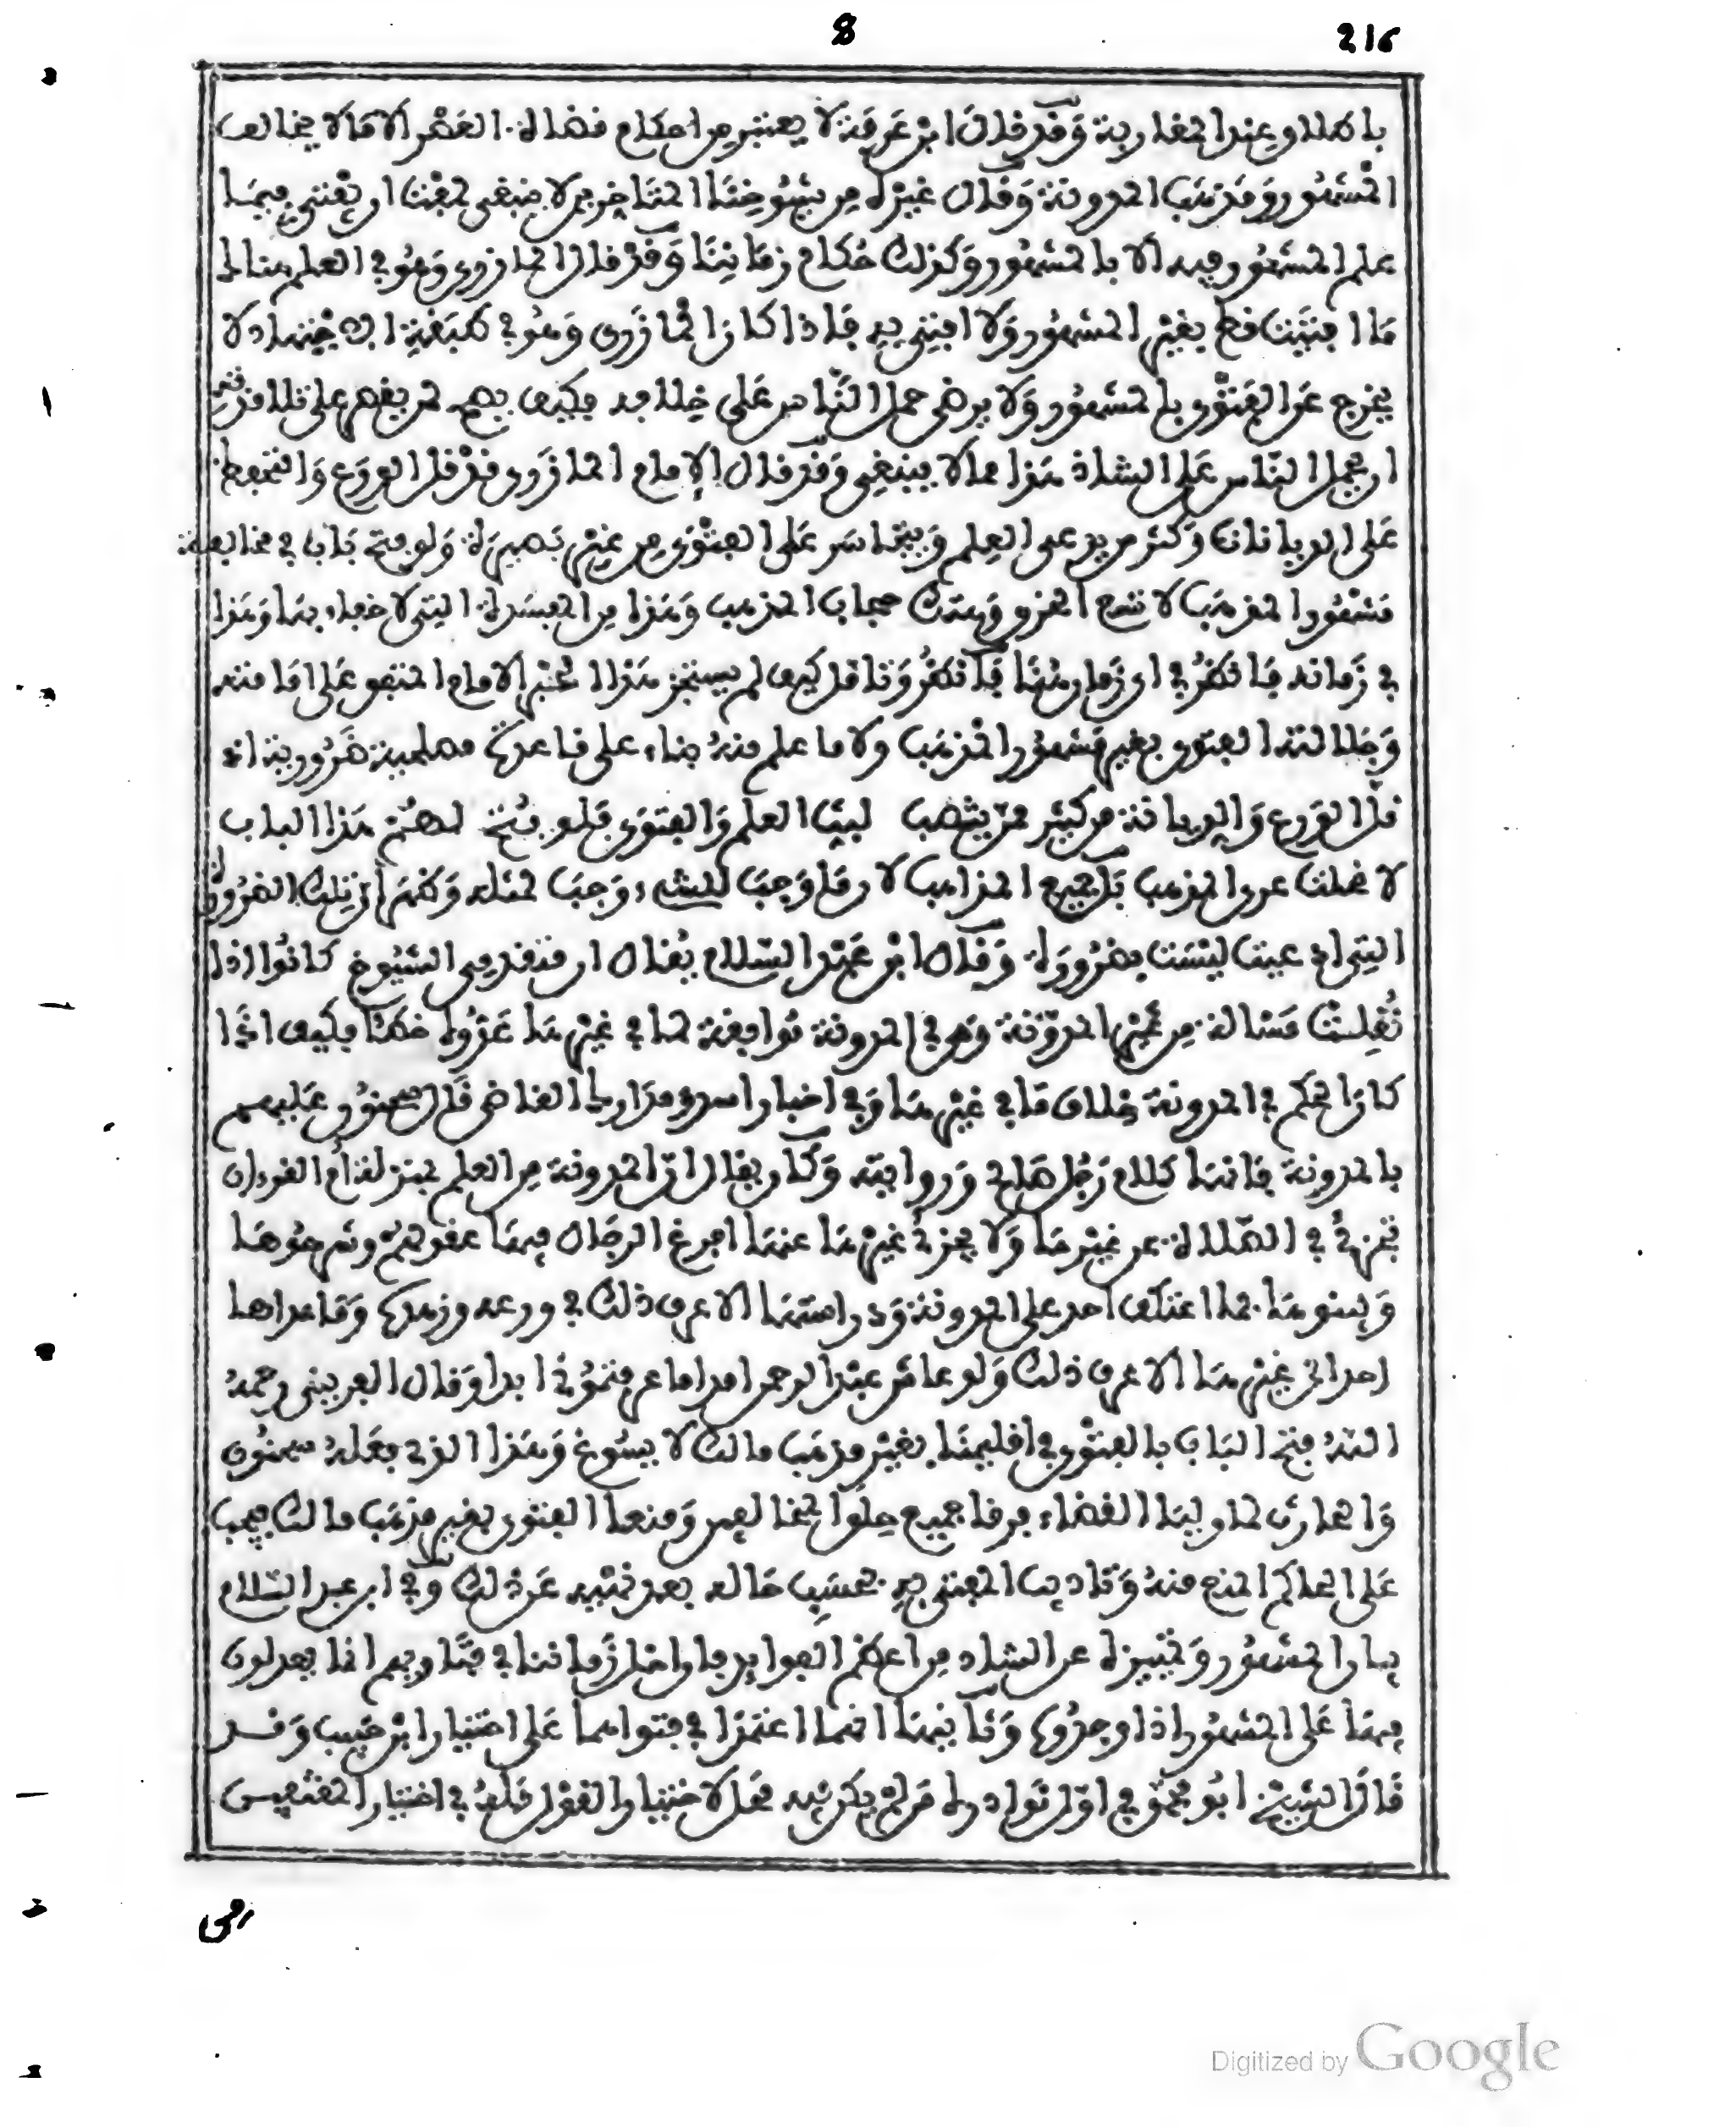 8
216
باطلاق عند المغاربة وَقَد قال ابن عَرَفَة لا يعتبر من احكام قضاة العَصْر الا مَا لا يخالف
المشهور وَمَذهَب المدونة وَقال غيره من شيوخنا المتاخرين لا ينبغي لمُفت ان يفتي فيمَا
علم المشهور فيه الا بالمشهور وَكذلك حُكام زمَاننا وَقد قال المازري وَهُو في العلم هنالك
مَا افتيت قط بغير المشهور وَلا افتي به فاذا كان المازري وَهُو في طبَقة الاجتهاد لا
يخرج عَن الفتوى بالمشهور وَلا يرضى حمل النّاس عَلى خلافه فكيف
ان يحمل الناس عَلى الشاذ هَذا مما لا ينبغي وَقد قال الإمام المازري قد قل الورَع وَالتحفظ
عَلى الديانات وَكثر من يدعي العِلم وَيتجاسَر عَلى الفتْوَى من غير بَصيرة وَلو فتح بَاب في مخالفة
مَشهُور المَذهَب لاتسع الخرق وَهتك حجاب المذهب وَهَذا من المفسدة التي لا خفاء بهَا وَهَذا
في زَمانه فَانظر في اي زَمان هُنا فَانظر وَتامل كيف لم يستجز هَذا الحبر الامام المتفق عَلى امَامته
وَجلالته الفتوى بغير مَشهُور المَذهَب ولا ما علم منهُ بناء على قاعدة مصلحية ضَرُورية اذ
قلّ الوَرع وَالديانة من كثير ممّن ينتصب لبث العلم وَالفتوى فلو فتح لهُم هَذا الباب
لانحلت عرى المذهب بَل جميع المذاهب لان مَا وَجبَ للشيء وَجبَ لمثله وَظهَر أن تلك الضرُورة
التي ادعيت ليْسَت بضرُورة وَقَال ابن عَبْد السّلام يُقال ان متقدمي الشيُوخ كانوا اذا
نُقِلت مَسْالة من غير المدوّنة وَهي في المدونة مُوافقة لما في غيرها عَدّوه خطأ فكيف اذا
كان الحكم في المدونة خلاف مَا في غيرهَا وَفي اخبار اسد القاضي قَال سحنُون عَليكم
بالمدونة فانهَا كلام رَجُل صَالح وَروايته وَكان يقال ان المدونة من العلم بمنزلة أم القرءان
تجزئ في الصّلاة عن غيرهَا وَلا يجزئ غيرهَا عنهَا افرغ الرجَال فيهَا عقولهُم وشرحُوهَا
وَبينوهَا فما اعتكف أحد على المدونة وَدراستها الا عرف ذلك في ورعه وزهده وَمَا عداها
احد الى غيرهَا الا عرف ذلك وَلو عاش عبْد الرحمن ابدا ما رءيتمُوني ابدا وَقال الغربيني رحمهُ
اللهُ فتح البَاب بالفتْوى في اقليمنَا بغير مذهَب مالك لا يسُوغ وَهذا الذي فعَله سحنُون
وَالحارث لما وليَا القضاء فرقا جميع حِلق المخالفين وَمنعا الفتوى بغير مذهَب مالك فيجب
عَلى الحاكم المنع منهُ وَتاديب المفتي به بحسَب حَاله بعد نهيه عَن ذلك وَفي ابن عبد السّلام
بيان المشهُور وَتمييزه عن الشاذ من اعظم الفوايد فان اهل زَماننا في فتَاويهم انما يعولون
فيهَا عَلى المشهُور اذا وجدُوه وَثانيهَا انهما اعتمدا في فتواهما عَلى اختيار ابن حَبيب وَقد
قال الشيخ أبُو محمّد في اوّل نَوادره مَن لم يكن فيه محَل لاختيار القوْل فلهُ في اختيار المفتيين
من
Digitized by Google